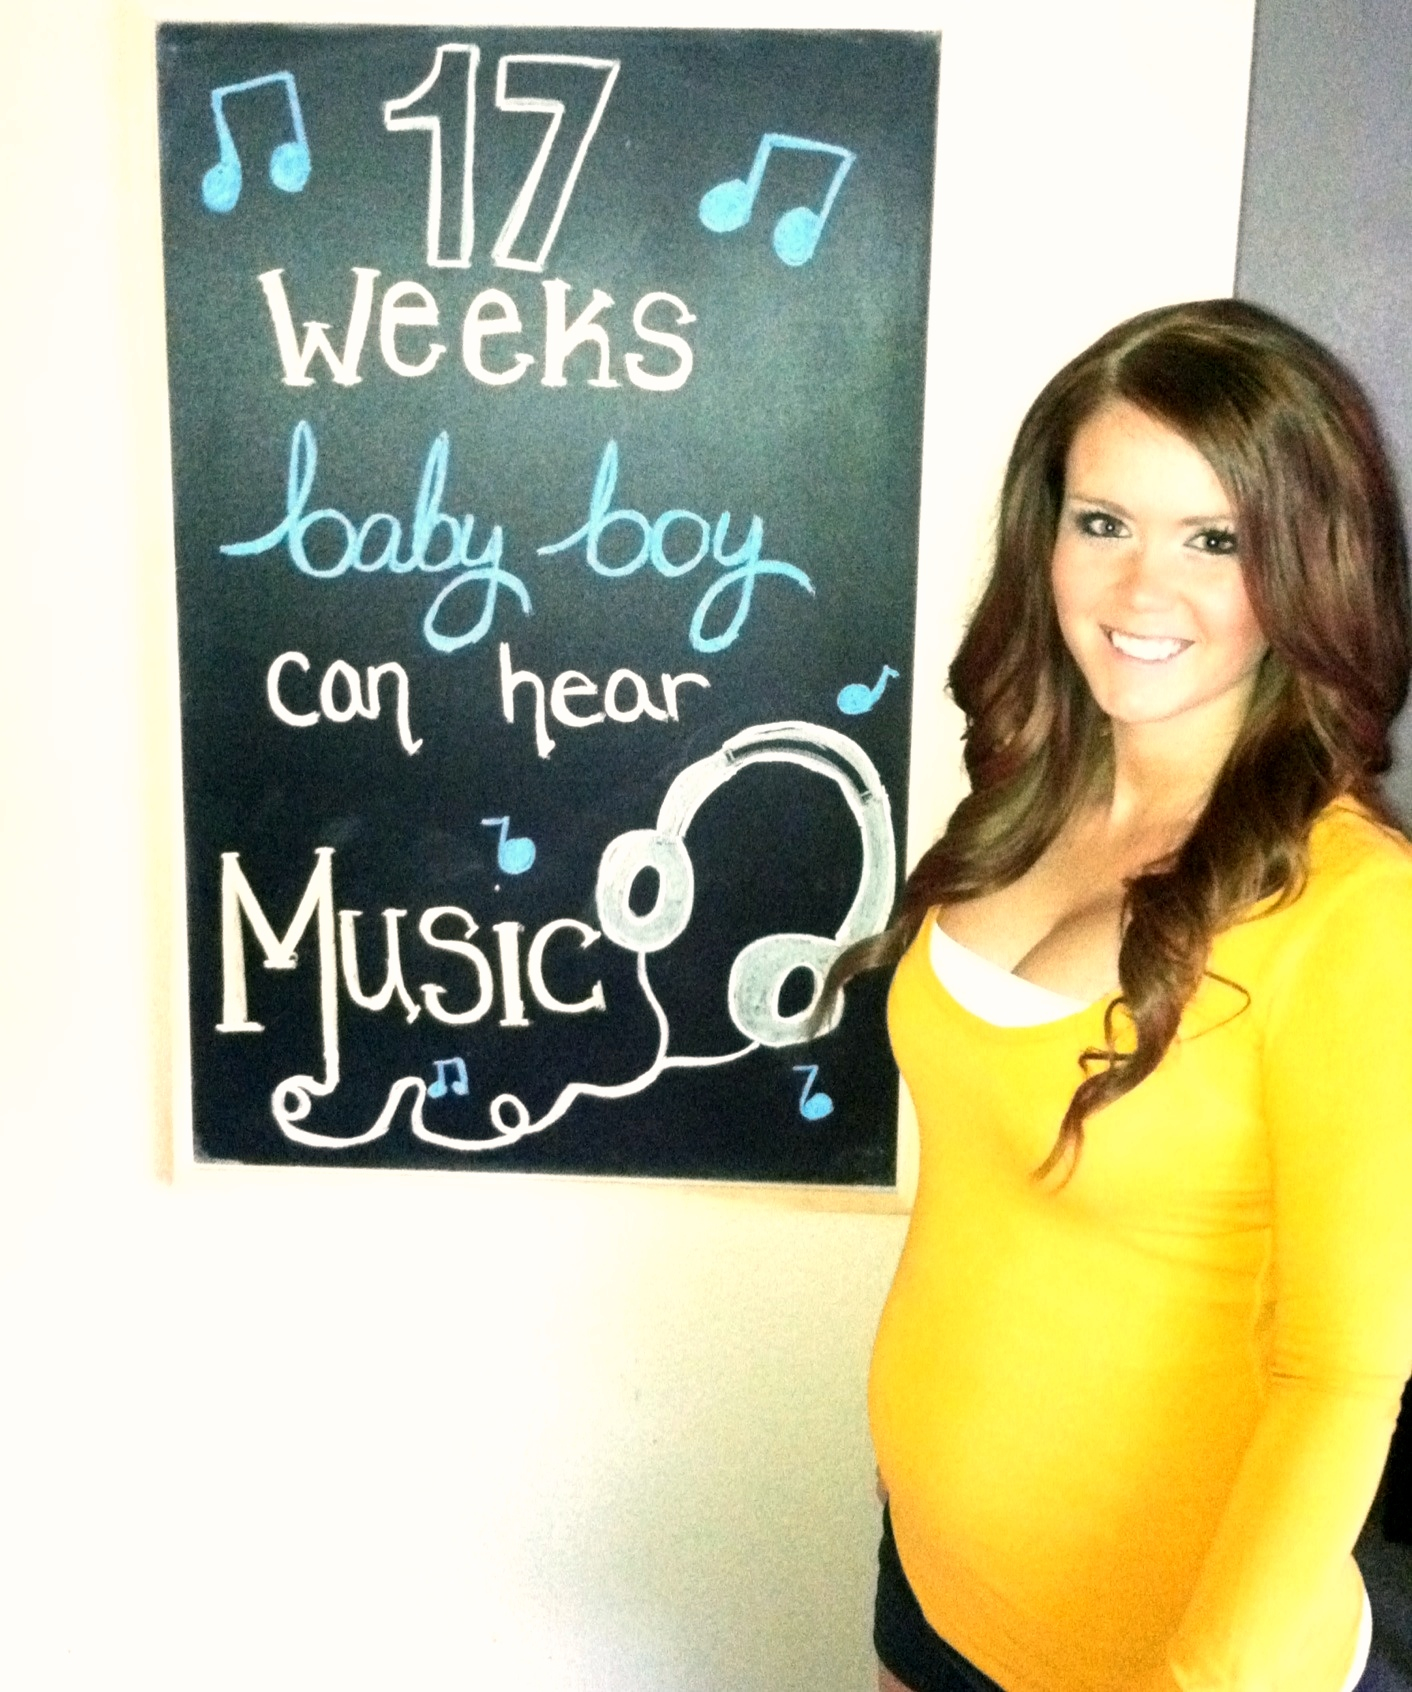 17
weeks
baby boy
can hear
Music